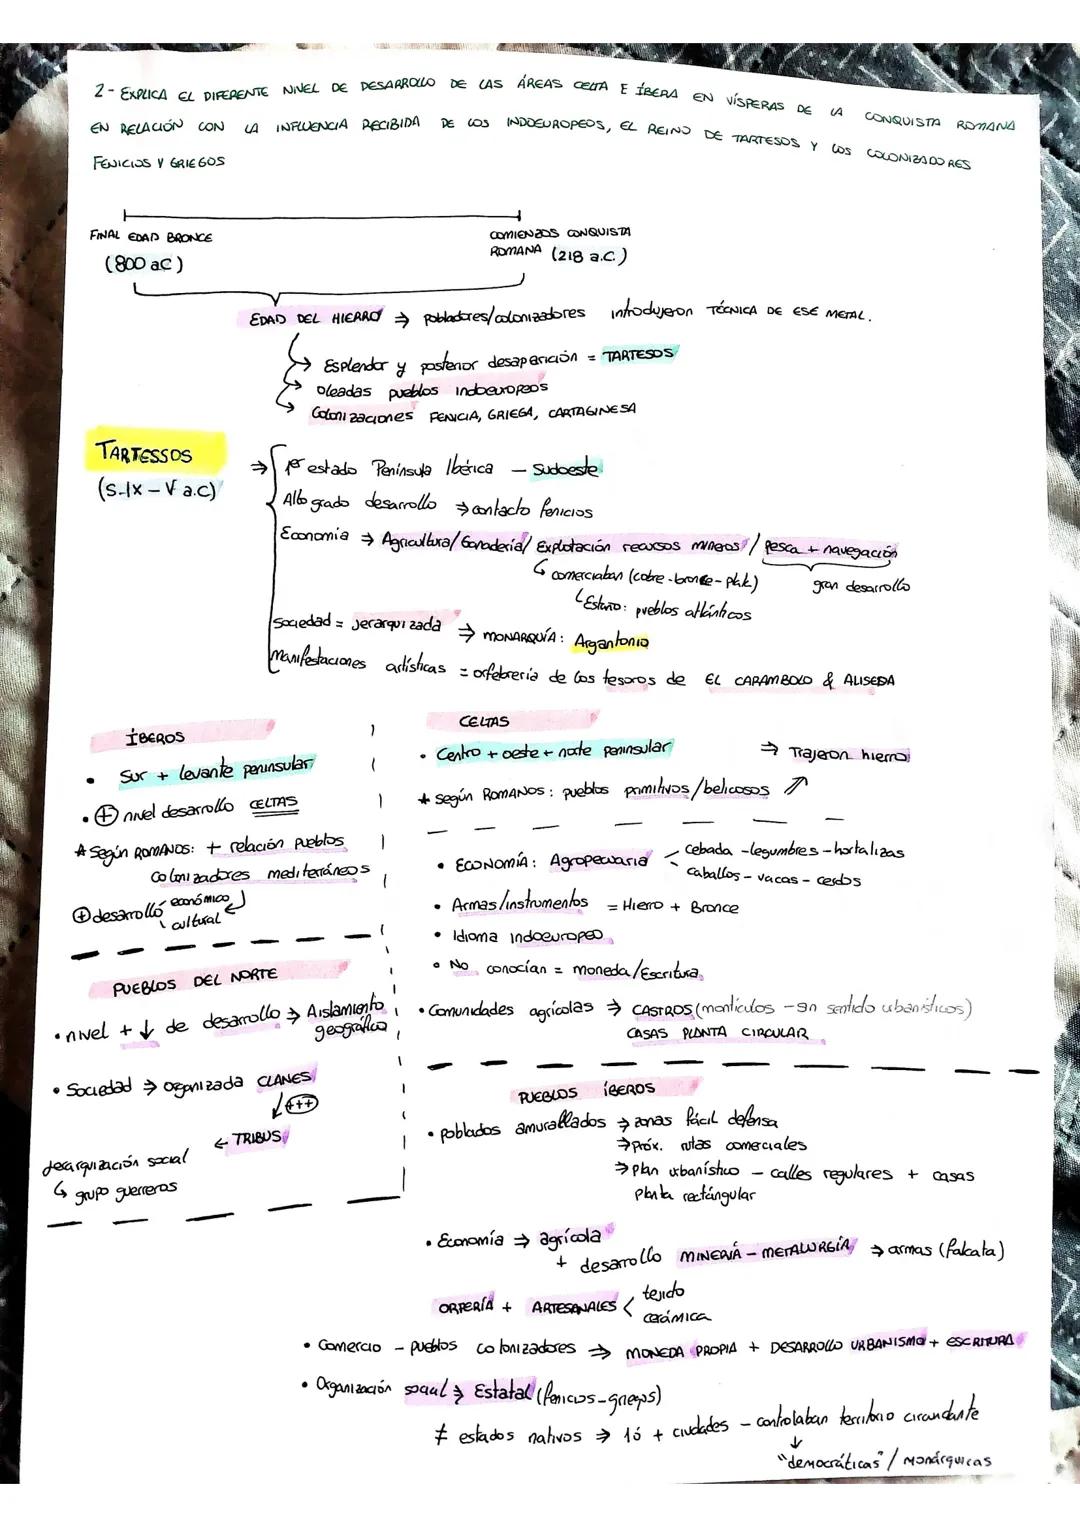 2- EXPLICA EL DIFERENTE NIVEL DE DESARROLLO DE LAS ÁREAS CELTA E ÍBERA EN VÍSPERAS DE LA CONQUISTA ROMANA
EN RELACIÓN CON LA INFLUENCIA RECIBIDA DE LOS INDOEUROPEOS, EL REINO DE TARTESOS Y LOS COLONIZADORES
FENICIOS Y GRIEGOS
FINAL EDAD BRONCE
(800 aC)
COMIENZOS CONQUISTA
ROMANA (218 a.C.)
EDAD DEL HIERRO ⇒ pobladores/colonizadores introdujeron TÉCNICA DE ESE METAL.
→ Esplendor y posterior desaparición = TARTESOS
→ Oleadas pueblos indoeuropeos
→ Colonizaciones FENICIA, GRIEGA, CARTAGINESA
TARTESSOS
(S-IX - V a.C)
⇒ 1er estado Península Ibérica - Sudoeste
Alto grado desarrollo ⇒ contacto fenicios
Economía ⇒ Agricultura/Ganadería/ Explotación recursos mineros / pesca + navegación
↳ comerciaban (cobre-bronce-plata)
gran desarrollo
↳ Estaño: pueblos atlánticos
Sociedad = jerarquizada ⇒ MONARQUÍA: Argantonio
Manifestaciones artísticas = orfebrería de los tesoros de EL CARAMBOLO & ALISEDA
ÍBEROS
• Sur + levante peninsular
• ⊕ nivel desarrollo CELTAS
* Según ROMANOS: + relación pueblos
colonizadores mediterráneos
⊕ desarrollo económico
cultural
CELTAS
• Centro + oeste + norte peninsular ⇒ Trajeron hierro
* según ROMANOS: pueblos primitivos/belicosos
• ECONOMÍA: Agropecuaria
cebada - legumbres - hortalizas
caballos - vacas - cerdos
• Armas/instrumentos = Hierro + Bronce
• Idioma indoeuropeo
• No conocían = moneda/Escritura
• Comunidades agrícolas ⇒ CASTROS (montículos - sin sentido urbanísticos)
CASAS PLANTA CIRCULAR
PUEBLOS DEL NORTE
• nivel + ↓ de desarrollo ⇒ Aislamiento
geográfico
• Sociedad ⇒ organizada CLANES
↓ +++
← TRIBUS
jerarquización social
↳ grupo guerreros
PUEBLOS ÍBEROS
• poblados amurallados ⇒ zonas fácil defensa
⇒ próx. rutas comerciales
⇒ plan urbanístico - calles regulares + casas
planta rectángular
• Economía ⇒ agrícola
+ desarrollo MINERIÁ - METALURGÍA ⇒ armas (falcata)
ORFERÍA + ARTESANALES
tejido
cerámica
• Comercio - pueblos colonizadores ⇒ MONEDA PROPIA + DESARROLLO URBANISMO + ESCRITURA
• Organización social ⇒ Estatal (fenicios-griegos)
≠ estados nativos ⇒ 1ó + ciudades - controlaban territorio circundante
↓
"democráticas" / Monárquicas